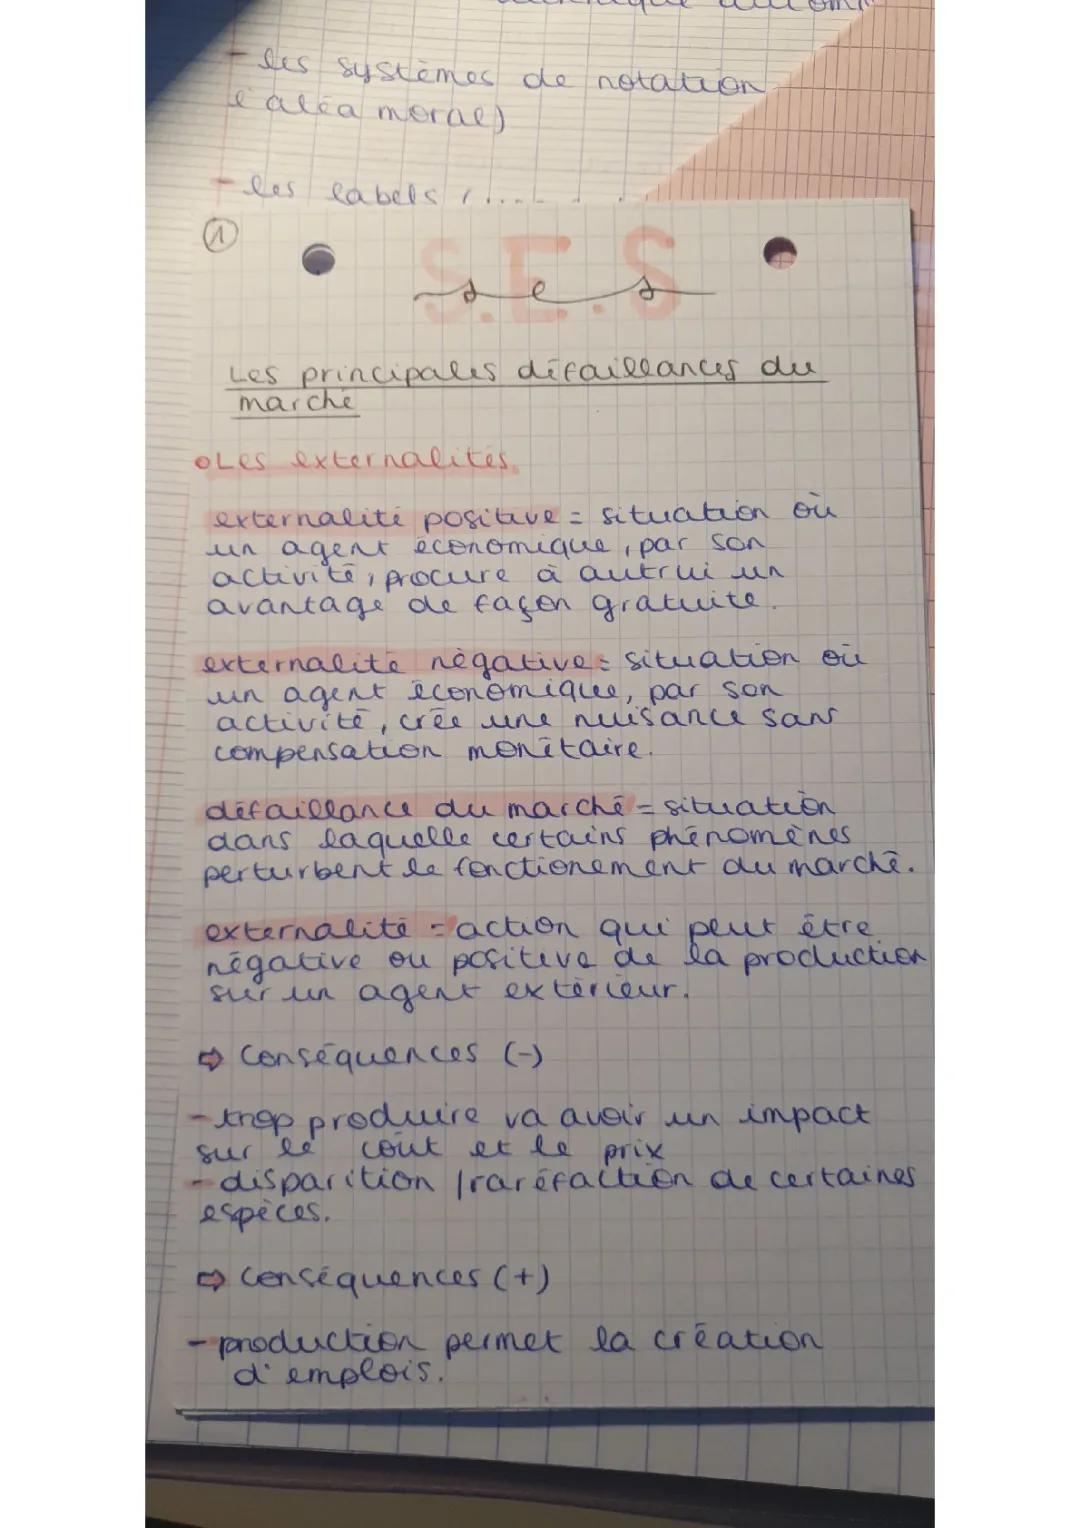 - les systèmes de notation
l'aléa moral)
- les labels
1
S.E.S
ses
Les principales défaillances du
marché
Les externalités.
externalité positive = situation où
un agent économique, par son
activité, procure à autrui un
avantage de façon gratuite.
externalité négative = situation où
un agent économique, par son
activité, crée une nuisance sans
compensation monétaire.
défaillance du marché = situation
dans laquelle certains phénomènes
perturbent le fonctionement du marché.
externalité = action qui peut être
négative ou positive de la production
sur un agent extérieur.
⇨ Conséquences (-)
- trop produire va avoir un impact
sur le coût et le prix
- disparition / raréfaction de certaines
espèces.
⇨ Conséquences (+)
- production permet la création
d'emplois.